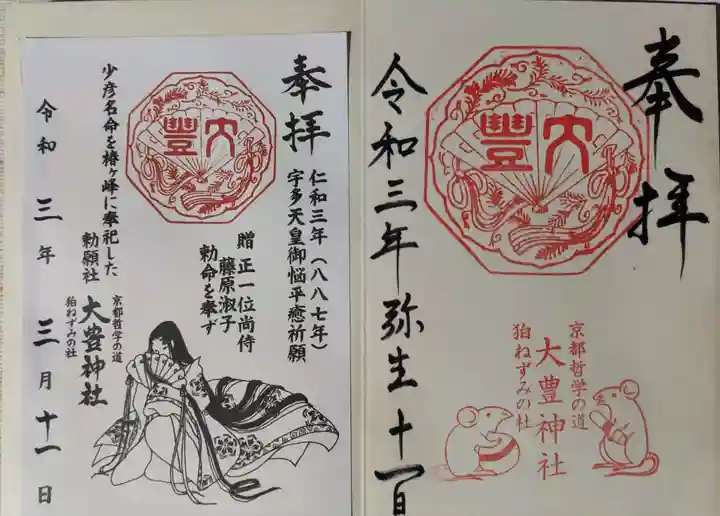 奉拝
大豊
令和三年弥生十一日
京都哲学の道
大豊神社
狛ねずみの社
奉拝
大豊
仁和三年（八八七年）
宇多天皇御悩平癒祈願
贈 正一位尚侍
藤原淑子
勅命を奉ず
少彦名命を椿ヶ峰に奉祀した
勅願社
京都哲学の道
大豊神社
狛ねずみの社
令和 三年 三月十一日